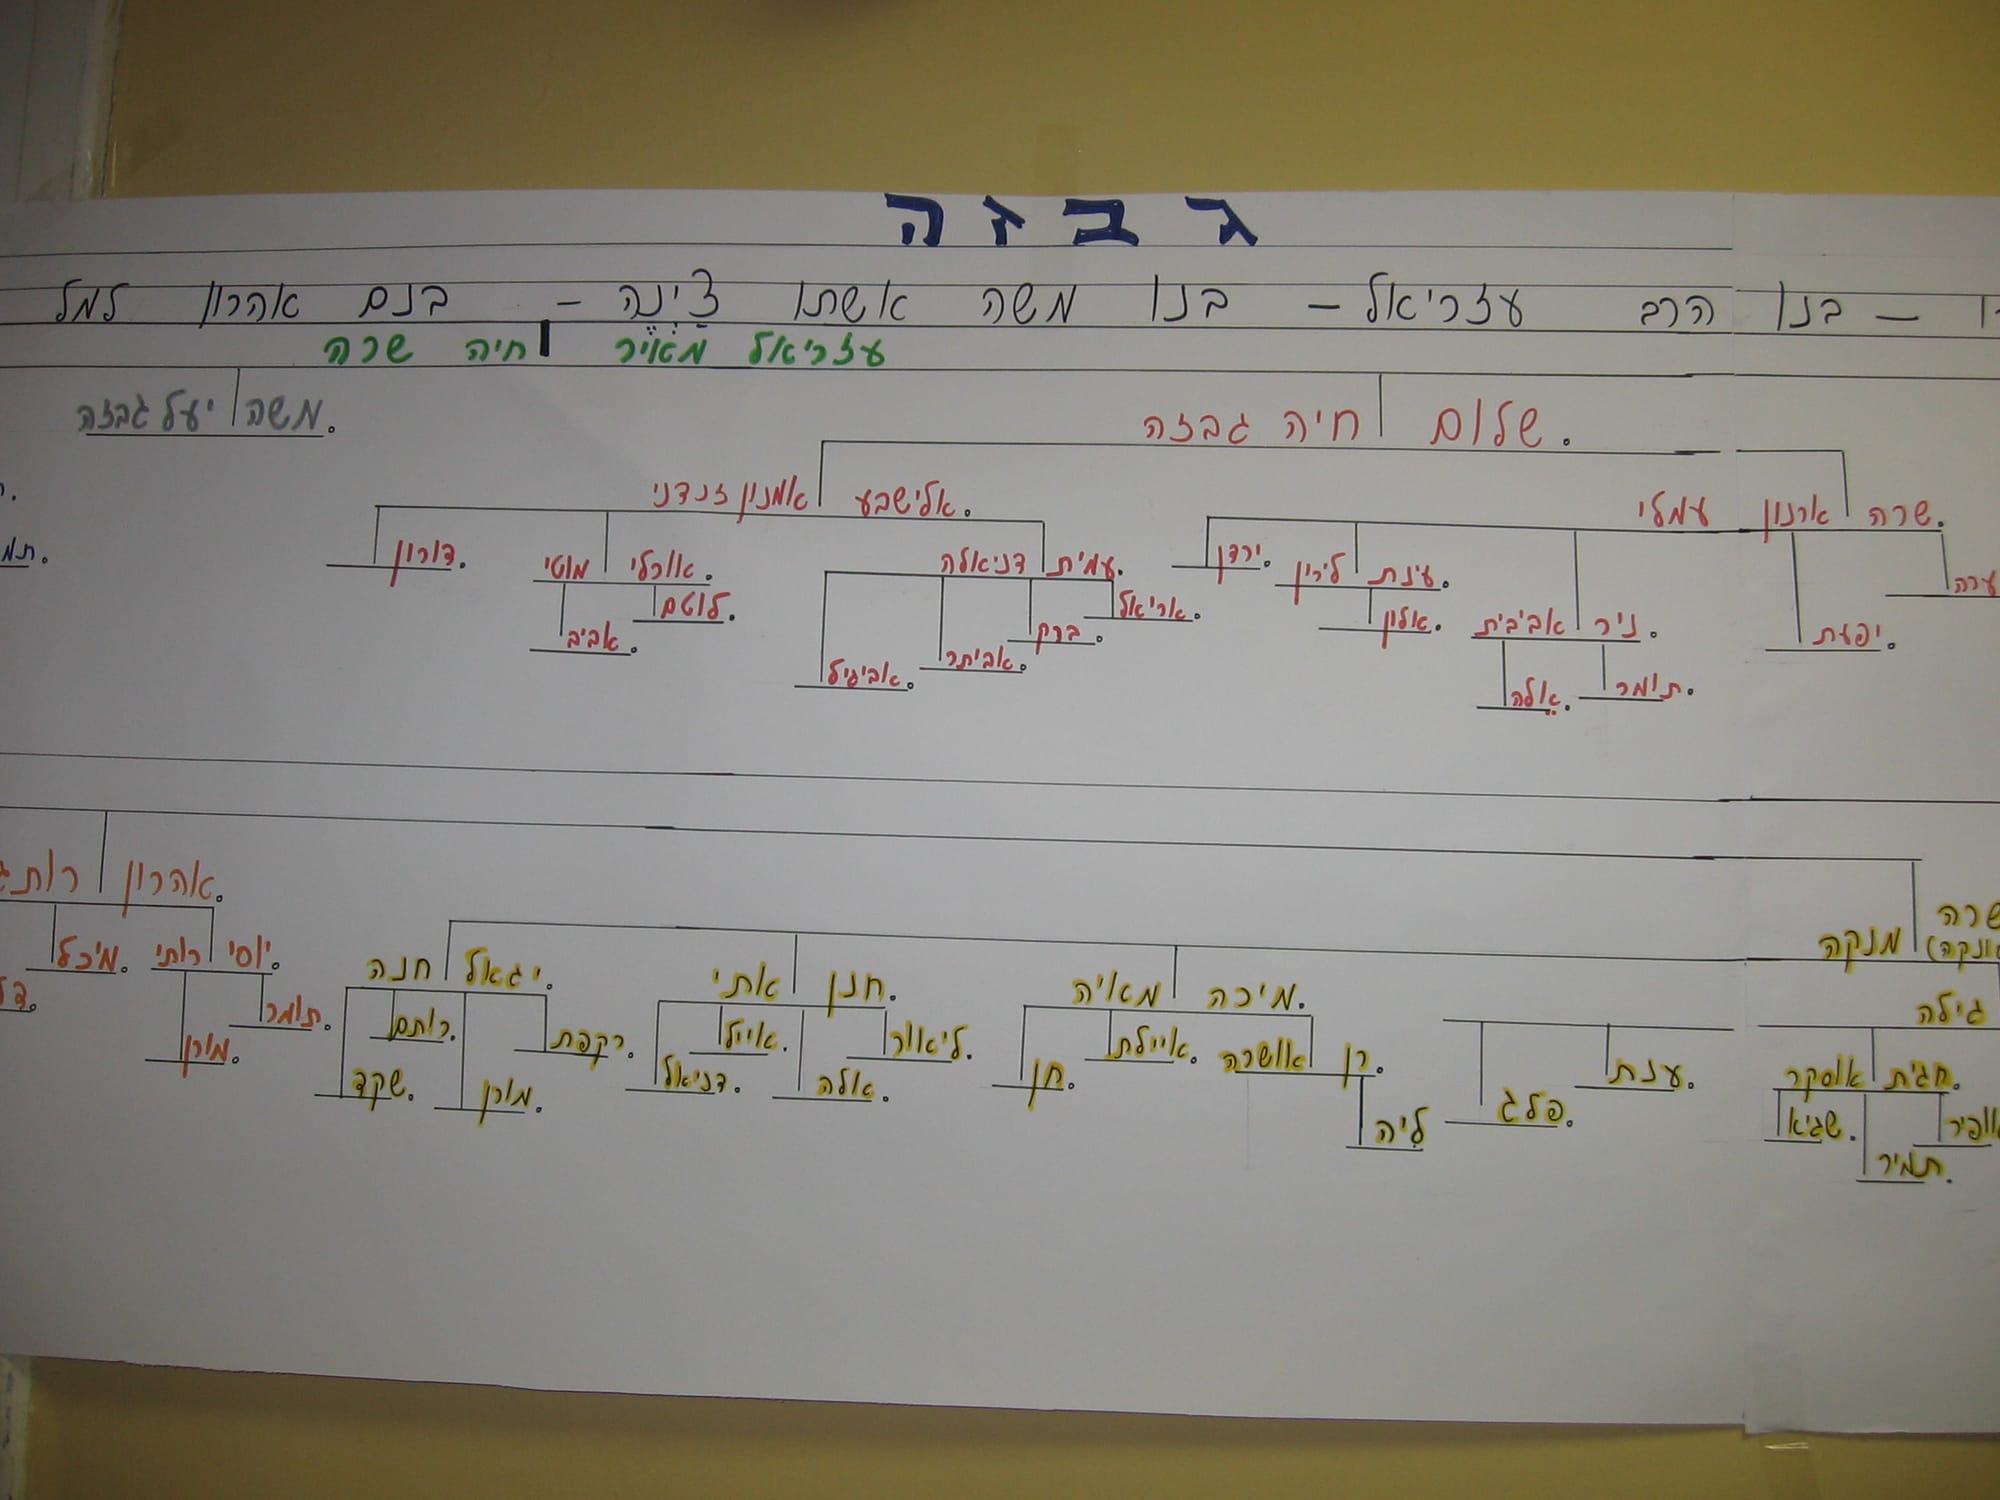 גבזה
בנו הרב עזריאל – בנו משה אשתו צ'ינה – בנם אהרון
עזריאל מאיר חיה שרה
שלום חיה גבזה.
משה יעל גבזה.
שרה ארנון עמלי.
אלישבע אמנון זנדני.
יפעת.
ניר אביבית.
ענת לירון.
ירדן.
עמית דניאלה.
אורלי מוטי.
דורון.
תומר.
אלה.
אלון.
אריאל.
ברק.
אביתר.
אביגיל.
לוטם.
אביב.
שרה מנקה
אהרון רות
גילה
מיכה מאיה.
חנן אתי.
יגאל חנה.
יוסי רותי.
מיכל.
חגית אוסקר.
ענת.
פלג.
רן אושרה.
איילת.
חן.
ליאור.
אלה.
אייל.
דניאל.
רקפת.
מורן.
רותם.
שקד.
תומר.
מורן.
אופיר
תמיר.
שגיא.
ליה